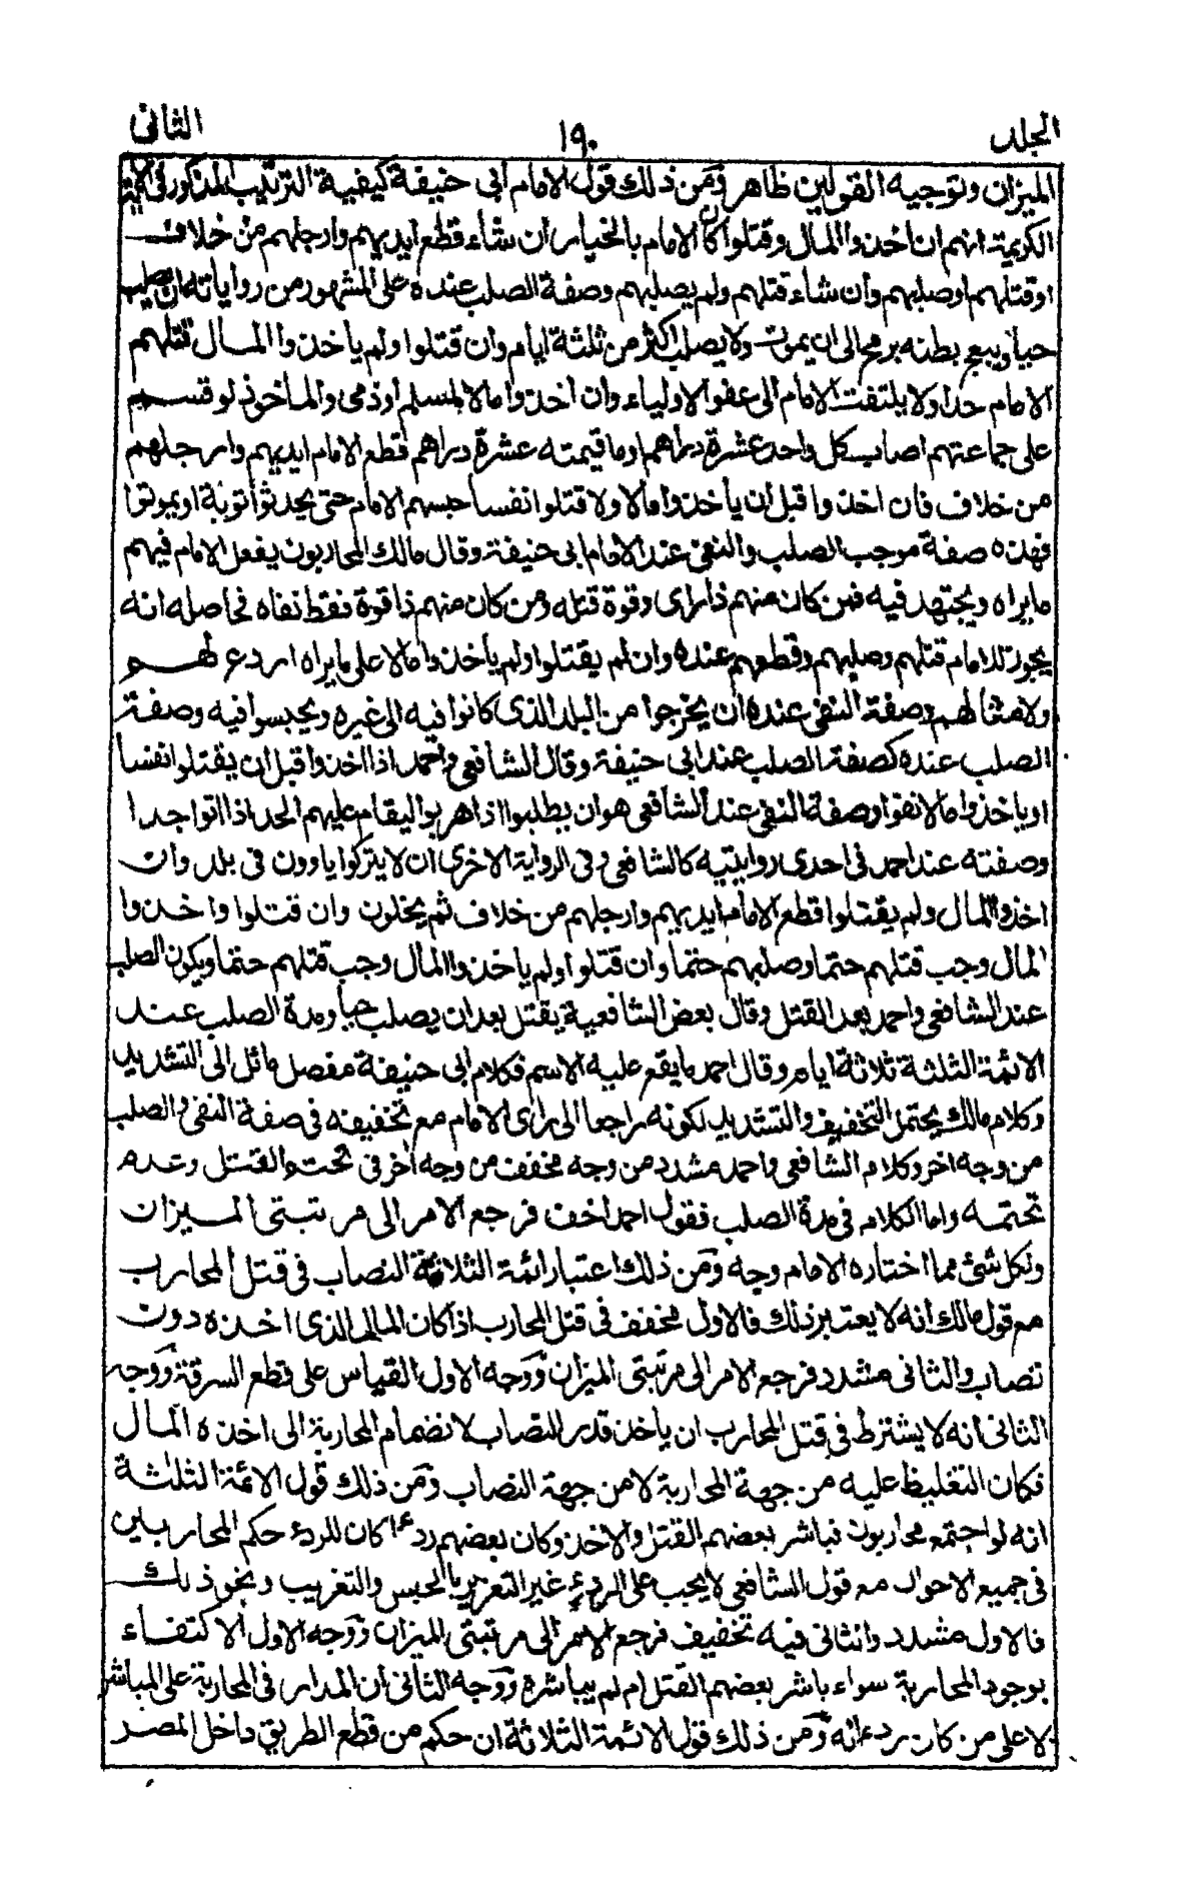 الجلد ١٩٠ الثاني
الميزان وتوجيه القولين ظاهر ومن ذلك قول الامام أبي حنيفة كيفية الترتيب المذكور في الآية
الكريمة انهم ان اخذوا المال وقتلوا كان الامام بالخيار ان شاء قطع ايديهم وارجلهم من خلاف
او قتلهم او صلبهم وأن شاء قتلهم ولم يصلبهم وصفة الصلب عنده على المشهور من رواياته ان يصلب
حيا ويبعج بطنه برمح الى ان يموت ولا يصلب اكثر من ثلثة ايام وان قتلوا ولم يأخذوا المال قتلهم
الامام حدا ولا يلتفت الامام الى عفو الاولياء وان اخذوا مالا لمسلم او ذمي والماخوذ لو قسم
على جماعتهم اصاب كل واحد عشرة دراهم او ما قيمته عشرة دراهم قطع الامام ايديهم وارجلهم
من خلاف فان اخذوا قبل ان يأخذوا مالا ولا قتلوا نفسا حبسهم الامام حتى يحدثوا توبة او يموتوا
فهذه صفة موجب الصلب والنفي عند الامام ابي حنيفة وقال مالك المحاربون يفعل الامام فيهم
ما يراه ويجتهد فيه فمن كان منهم ذا راى وقوة قتله ومن كان منهم ذا قوة فقط نفاه فحاصله انه
يجوز للامام قتلهم وصلبهم وقطعهم عنده وان لم يقتلوا ولم يأخذوا مالا على ما يراه اردع لهم
ولامثالهم وصفة النفي عنده ان يخرجوا من البلد الذى كانوا فيه الى غيره ويحبسوا فيه وصفة
الصلب عنده كصفة الصلب عند ابي حنيفة وقال الشافعي واحمد اذا اخذوا قبل ان يقتلوا نفسا
او ياخذوا مالا نفوا وصفة النفي عند الشافعي هو ان يطلبوا اذا هربوا ليقام عليهم الحد اذا اتوا حدا
وصفته عند احمد في احدى روايتيه كالشافعي وفي الرواية الاخرى ان لا يتركوا ياوون في بلد وان
اخذوا المال ولم يقتلوا قطع الامام ايديهم وارجلهم من خلاف ثم يخلون وان قتلوا واخذوا
المال وجب قتلهم حتما وصلبهم حتما وان قتلوا ولم ياخذوا المال وجب قتلهم حتما ويكون الصلب
عند الشافعي واحمد بعد القتل وقال بعض الشافعية يقتل بعد ان يصلب حيا ومدة الصلب عند
الائمة الثلثة ثلاثة ايام وقال احمد ما يقع عليه الاسم فكلام ابي حنيفة مفصل مائل الى التشديد
وكلام مالك يحتمل التخفيف والتشديد لكونه راجعا الى راى الامام مع تخفيفه في صفة النفي والصلب
من وجه اخر وكلام الشافعي واحمد مشدد من وجه مخفف من وجه اخر في تحتم القتل وعدم
تحتمه واما الكلام في مدة الصلب فقول احمد اخف فرجع الامر الى مرتبتى الميزان
ولكل شئ مما اختاره الامام وجه ومن ذلك اعتبار ائمة الثلاثة النصاب في قتل المحارب
مع قول مالك انه لا يعتبر ذلك فالاول مخفف في قتل المحارب اذا كان المال الذى اخذه دون
نصاب والثاني مشدد فرجع الامر الى مرتبتى الميزان ووجه الاول القياس على قطع السرقة ووجه
الثاني انه لا يشترط في قتل المحارب ان يأخذ قدر النصاب لانضمام المحاربة الى اخذه المال
فكان التغليظ عليه من جهة المحاربة لا من جهة النصاب ومن ذلك قول الائمة الثلثة
انه لو اجتمع محاربون فباشر بعضهم القتل والاخذ وكان بعضهم ردءا كان للردء حكم المحاربين
في جميع الاحوال مع قول الشافعي لا يجب على الردء غير التعزير بالحبس والتغريب ونحو ذلك
فالاول مشدد والثاني فيه تخفيف فرجع الامر الى مرتبتى الميزان ووجه الاول الاكتفاء
بوجود المحاربة سواء باشر بعضهم القتل ام لم يباشره ووجه الثاني ان المدار في المحاربة على المباشر
لا على من كان ردءا له ومن ذلك قول الائمة الثلاثة ان حكم من قطع الطريق داخل المصر